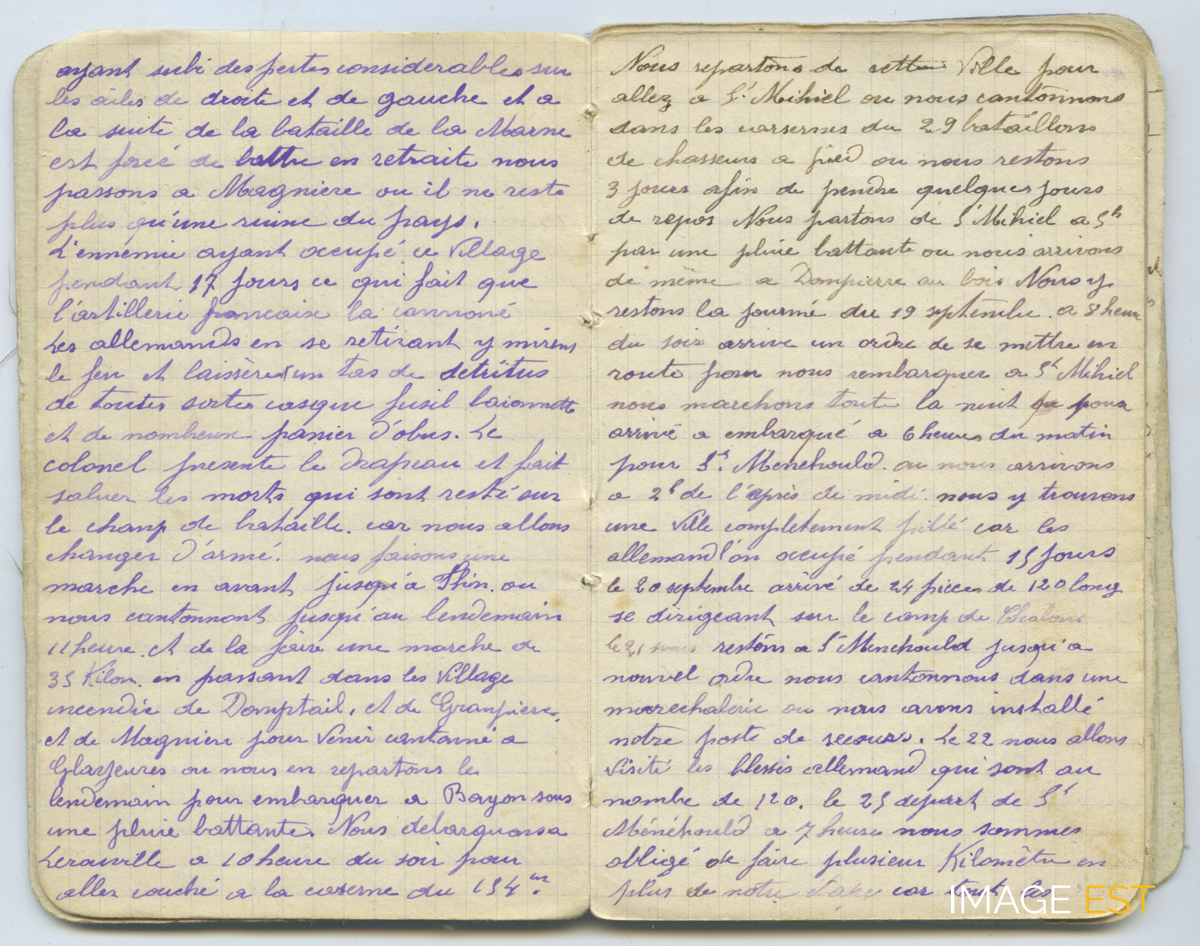 ayant subi des pertes considerables sur
les ailes de droite et de gauche et a
la suite de la bataille de la Marne
est forcé de battre en retraite nous
passons a Magniere ou il ne reste
plus qu'une ruine du pays.
L'ennemie ayant occupé ce village
pendant 17 jours ce qui fait que
l'artillerie francaise la cannoné
Les allemands en se retirant y mirens
le feu et laissèrent un tas de détritus
de toutes sortes casque fusil baionnette
et de nombreux panier d'obus. Le
colonel presente le drapeau et fait
saluer les morts qui sont resté sur
le champ de bataille. car nous allons
changer d'armé. nous faisons une
marche en avant jusqu'a Thin. ou
nous cantonnont jusqu'au lendemain
11 heure. et de la faire une marche de
35 Kilom. en passant dans les Village
incendie de Domptail, et de
et de Magniere pour Venir cantonné a
ou nous en repartons le
lendemain pour embarquer a Bayon sous
une pluie battante. Nous debarquons a
Lerouville a 10 heure du soir pour
allez couché a la caserne du 154 m.
Nous repartons de cette Ville pour
allez a St Mihiel ou nous cantonnons
dans les casernes du 29 bataillons
de chasseurs a pied ou nous restons
3 jours afin de pendre quelques jours
de repos Nous partons de St Mihiel a 5h
par une pluie battante ou nous arrivons
de même a Dompierre au bois Nous y
restons la journé du 19 septembre. a 8 heure
du soir arrive un ordre de se mettre en
route pour nous rembarquer a St Mihiel
nous marchons toute la nuit pour
arrivé a embarqué a 6 heures du matin
pour St. Menehould. ou nous arrivons
a 2h de l'après de midi. nous y trouvons
une Ville completement pillé car les
allemand l'on occupé pendant 15 jours
le 20 septembre arrivé de 24 pieces de 120 long
se dirigeant sur le camp de Chalons
le 21 nous restons a St Menehould jusqu'a
nouvel ordre nous cantonnons dans une
marechalerie ou nous avons installé
notre poste de secours. Le 22 nous allons
Visité les blessés allemand qui sont au
nombre de 120. le 25 depart de St
Ménéhould a 7 heures nous sommes
obligé de faire plusieur Kilomètre en
plus de notre étape car tout les
IMAGE EST